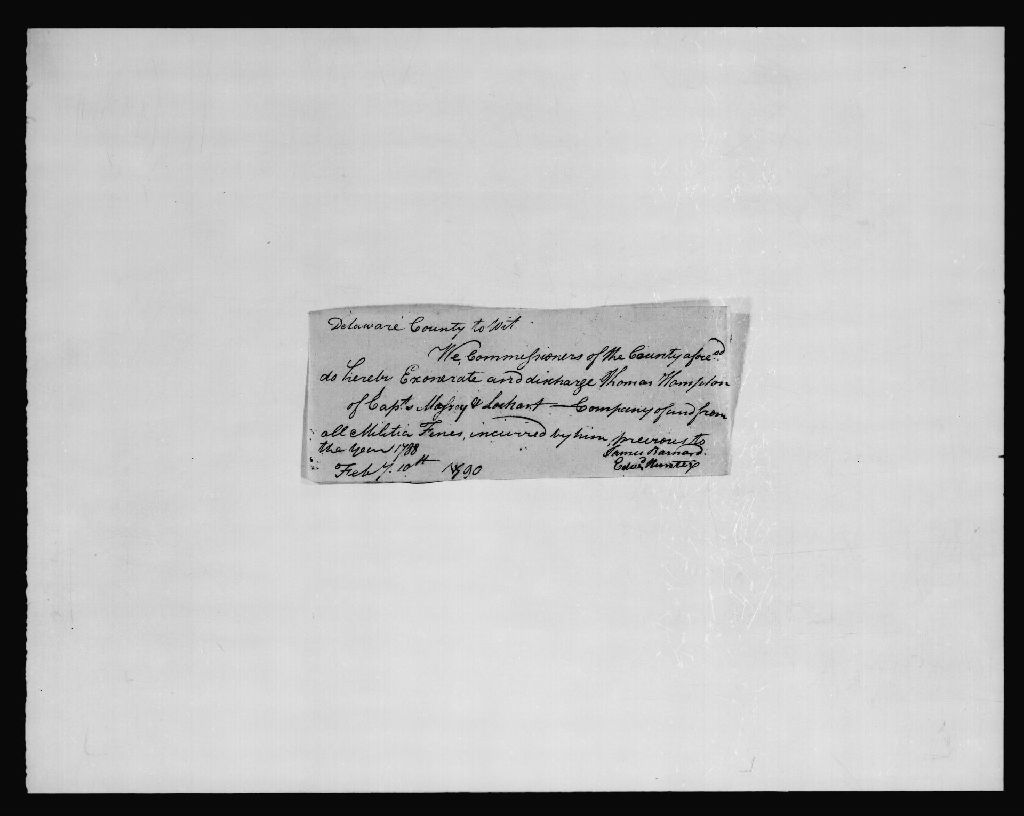 Delaware County to Wit
We Commissioners of the County afores.d
do hereby Exonerate and discharge Thomas Hampton
of Capt.s & Lockart — Company of and from
all Militia Fines, incurred by him previous to
the year 1788
James Barnard.
Edw.d Hunter
Feb.y. 10th 1790